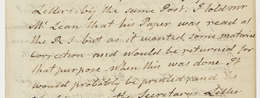 Letter by the same Post. I told our
Mr. Lean that his Paper was read at
the R S but as it wanted some material
Correction and would be returned for
that purpose when this was done. It
would probably be printed and
the Secretary's Letter